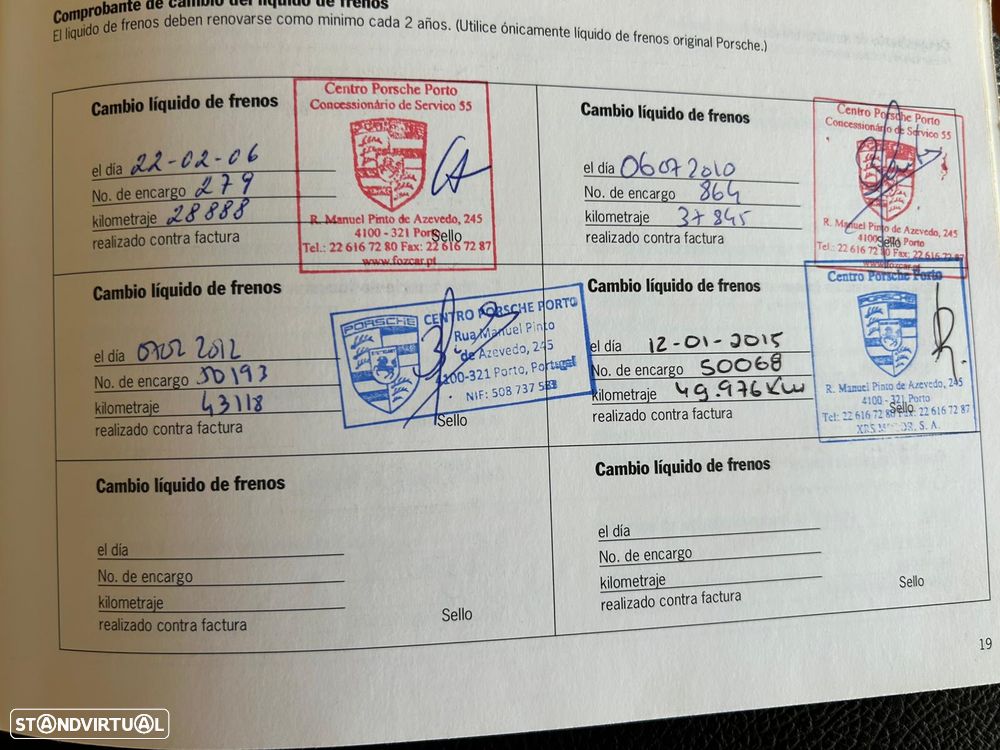 Comprobante de cambio del líquido de frenos
El líquido de frenos deben renovarse como minimo cada 2 años. (Utilice ónicamente líquido de frenos original Porsche.)
Cambio líquido de frenos
el día 22-02-06
No. de encargo 279
kilometraje 28888
realizado contra factura
Sello
Centro Porsche Porto
Concessionário de Servico 55
R. Manuel Pinto de Azevedo, 245
4100 - 321 Porto
Tel.: 22 616 72 80 Fax: 22 616 72 87
www.fozcar.pt
Cambio líquido de frenos
el día 06072010
No. de encargo 864
kilometraje 37845
realizado contra factura
Sello
Centro Porsche Porto
Concessionário de Servico 55
R. Manuel Pinto de Azevedo, 245
Porto
Tel.: 22 616 72 80 Fax: 22 616 72 87
www.fozcar.pt
Cambio líquido de frenos
el día 0702 2012
No. de encargo 50193
kilometraje 43118
realizado contra factura
Sello
PORSCHE
CENTRO PORSCHE PORTO
Rua Manuel Pinto
de Azevedo, 245
4100-321 Porto, Portugal
NIF: 508 737 583
Cambio líquido de frenos
el día 12-01-2015
No. de encargo 50068
kilometraje 49.976Km
realizado contra factura
Sello
Centro Porsche Porto
R. Manuel Pinto de Azevedo, 245
4100 - 321 Porto
Tel: 22 616 72 80 Fax: 22 616 72 87
S. A.
Cambio líquido de frenos
el día
No. de encargo
kilometraje
realizado contra factura
Sello
Cambio líquido de frenos
el día
No. de encargo
kilometraje
realizado contra factura
Sello
19
STANDVIRTUAL